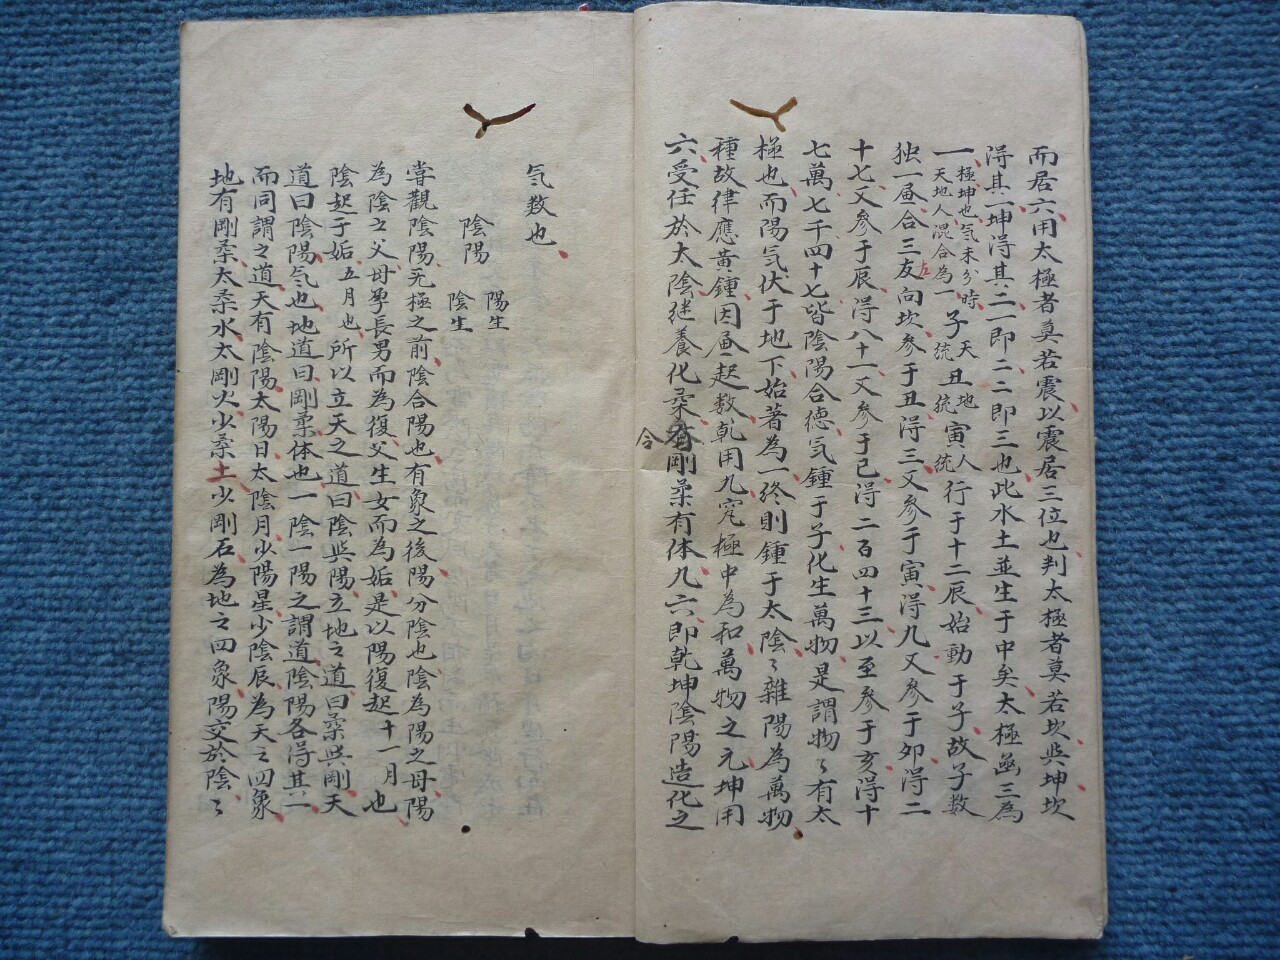 而居六用太極者莫若震以震居三位也判太極者莫若坎與坤坎
得其一坤得其二一即二二即三也此水土並生于中矣太極函三為
一極坤也氣未分時天地人混合為一子天統丑地統寅人統行于十二辰始動于子故子數
独一画合三友向坎参于丑淂三又参于寅淂九又参于卯淂二
十七又参于辰淂八十一又参于巳淂二百四十三以至参于亥淂十
七萬七千四十七皆陰陽合徳気鍾于子化生萬物是謂物々有太
極也而陽気伏于地下始著為一終則鍾于太陰々雜陽為萬物
種故律應黄鍾因画一起数乾用九究極中為和萬物之元坤用
六受任於太陰継養化柔合剛柔有体九六即乾坤陰陽造化之
気数也
陰陽 陽生 陰生
嘗觀陰陽死極之前陰合陽也有象之後陽分陰也陰為陽之母陽
為陰之父母孕長男而為復父生女而為姤是以陽復起十一月也
陰起于姤五月也所以立天之道曰陰與陽立地之道曰柔與剛天
道曰陰陽気也地道曰剛柔体也一陰一陽之謂道陰陽各淂其一
而同謂之道天有陰陽太陽日太陰月少陽星少陰辰為天之四象
地有剛柔太柔水太剛火少柔土少剛石為地之四象陽交於陰々